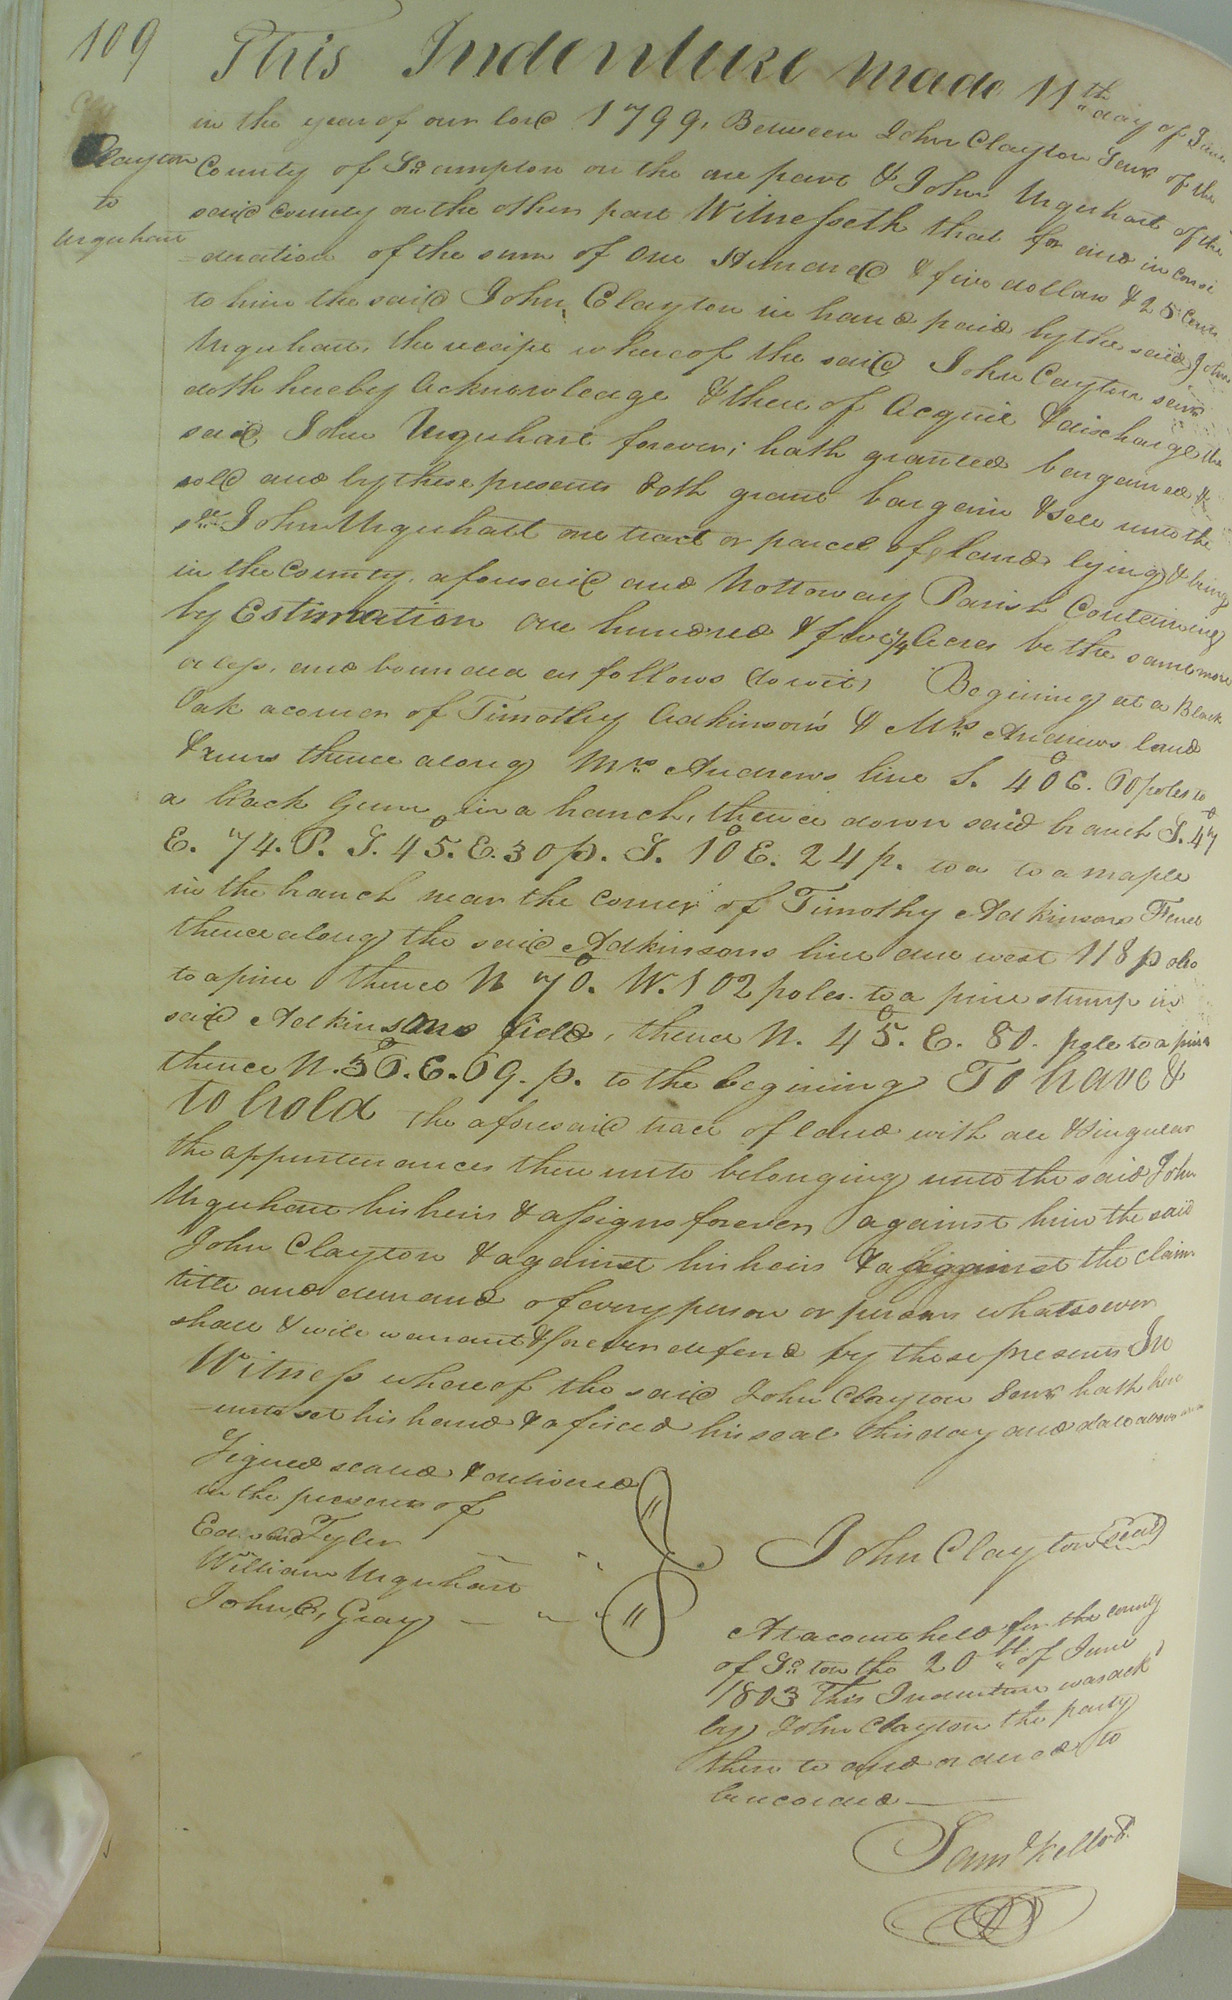 109
This Indenture made 11th day of June
in the year of our lord 1799, Between John Clayton Senr of the
Clayton
to
Urquhart
County of So ampton on the one part & John Urquhart of the
said County on the other part Witnesseth that for and in consi
=deration of the sum of One Hundred & five dollars & 25 Cents
to him the said John Clayton in hand paid by the said John
Urquhart, the receipt whereof the said John Cayton senr
doth hereby Acknowledge & thereof Acquit & discharge the
said John Urquhart forever; hath granted bargained &
sold and by these presents doth grant bargain & sell unto the
sd John Urquhatt one tract or parcel of land lying & being
in the County aforesaid and Nottoway Parish Containing
by Estimation one hundred & five 1/4 Acres be the same more
or less, and bounded as follows (to wit) Begining at a Black
Oak a corner of Timothy Adkinson's & Mrs Andrews land
& runs thence along Mrs Andrews line S. 40 E. 60 poles to
a black Gum in a branch, thence down said branch S. 47
E. 74. P. S. 45. E. 30 p. S. 10 E. 24 p. to a to a maple
in the branch near the corner of Timothy Adkinsons Fence
thence along the said Adkinsons line due west 118 poles
to a pine thence N 70. W. 102 poles to a pine stump in
said Adkinsons field, thence N. 45. E. 80. pole to a pine
thence N. 30. E. 69. p. to the begining To have &
to hold the aforesaid tract of land with all & singular
the appurtenances there unto belonging unto the said John
Urquhart his heirs & assigns forever against him the said
John Clayton & against his heirs & against the claim
title and demand of every person or persons whatsoever
shall & will warrant & forever defend by these presents In
Witness whereof the said John Clayton Senr hath here
=unto set his hand & afixed his seal this day and date above
Signed sealed & delivered
in the presence of
Edward Tyler
William Urquhart
John C, Gray
John Clayton (seal)
At a court held for the county
of So ton the 20th of June
1803 This Indenture was ack
by John Clayton the party
there to and ordered to
be recorded
Saml Kello